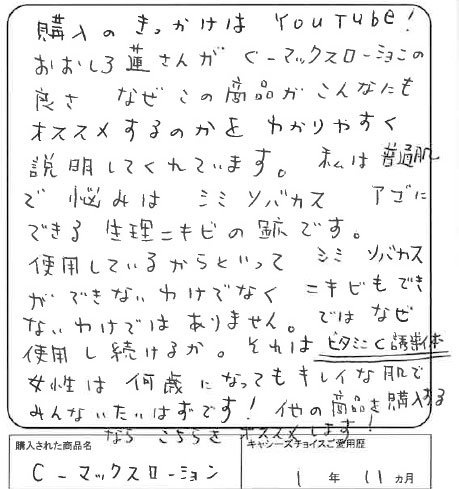 購入の きっかけは YouTube!
おおしろ 蓮さんが C-マックスローションの
良さ なぜ この 商品が こんなにも
オススメ するのかを わかりやすく
説明してくれています。 私は 普通肌
で 悩みは シミ ソバカス アゴに
できる 生理ニキビの 跡です。
使用しているからといって シミ ソバカス
ができないわけでなく ニキビもでき
ないわけでは ありません。 では なぜ
使用し 続けるか。 それは ビタミンC誘導体
女性は 何歳になっても キレイな 肌で
みんないたいはずです! 他の商品を購入する
なら こちらを オススメします!
購入された商品名
C-マックスローション
キャシーズチョイスご愛用歴
1 年 11 カ月